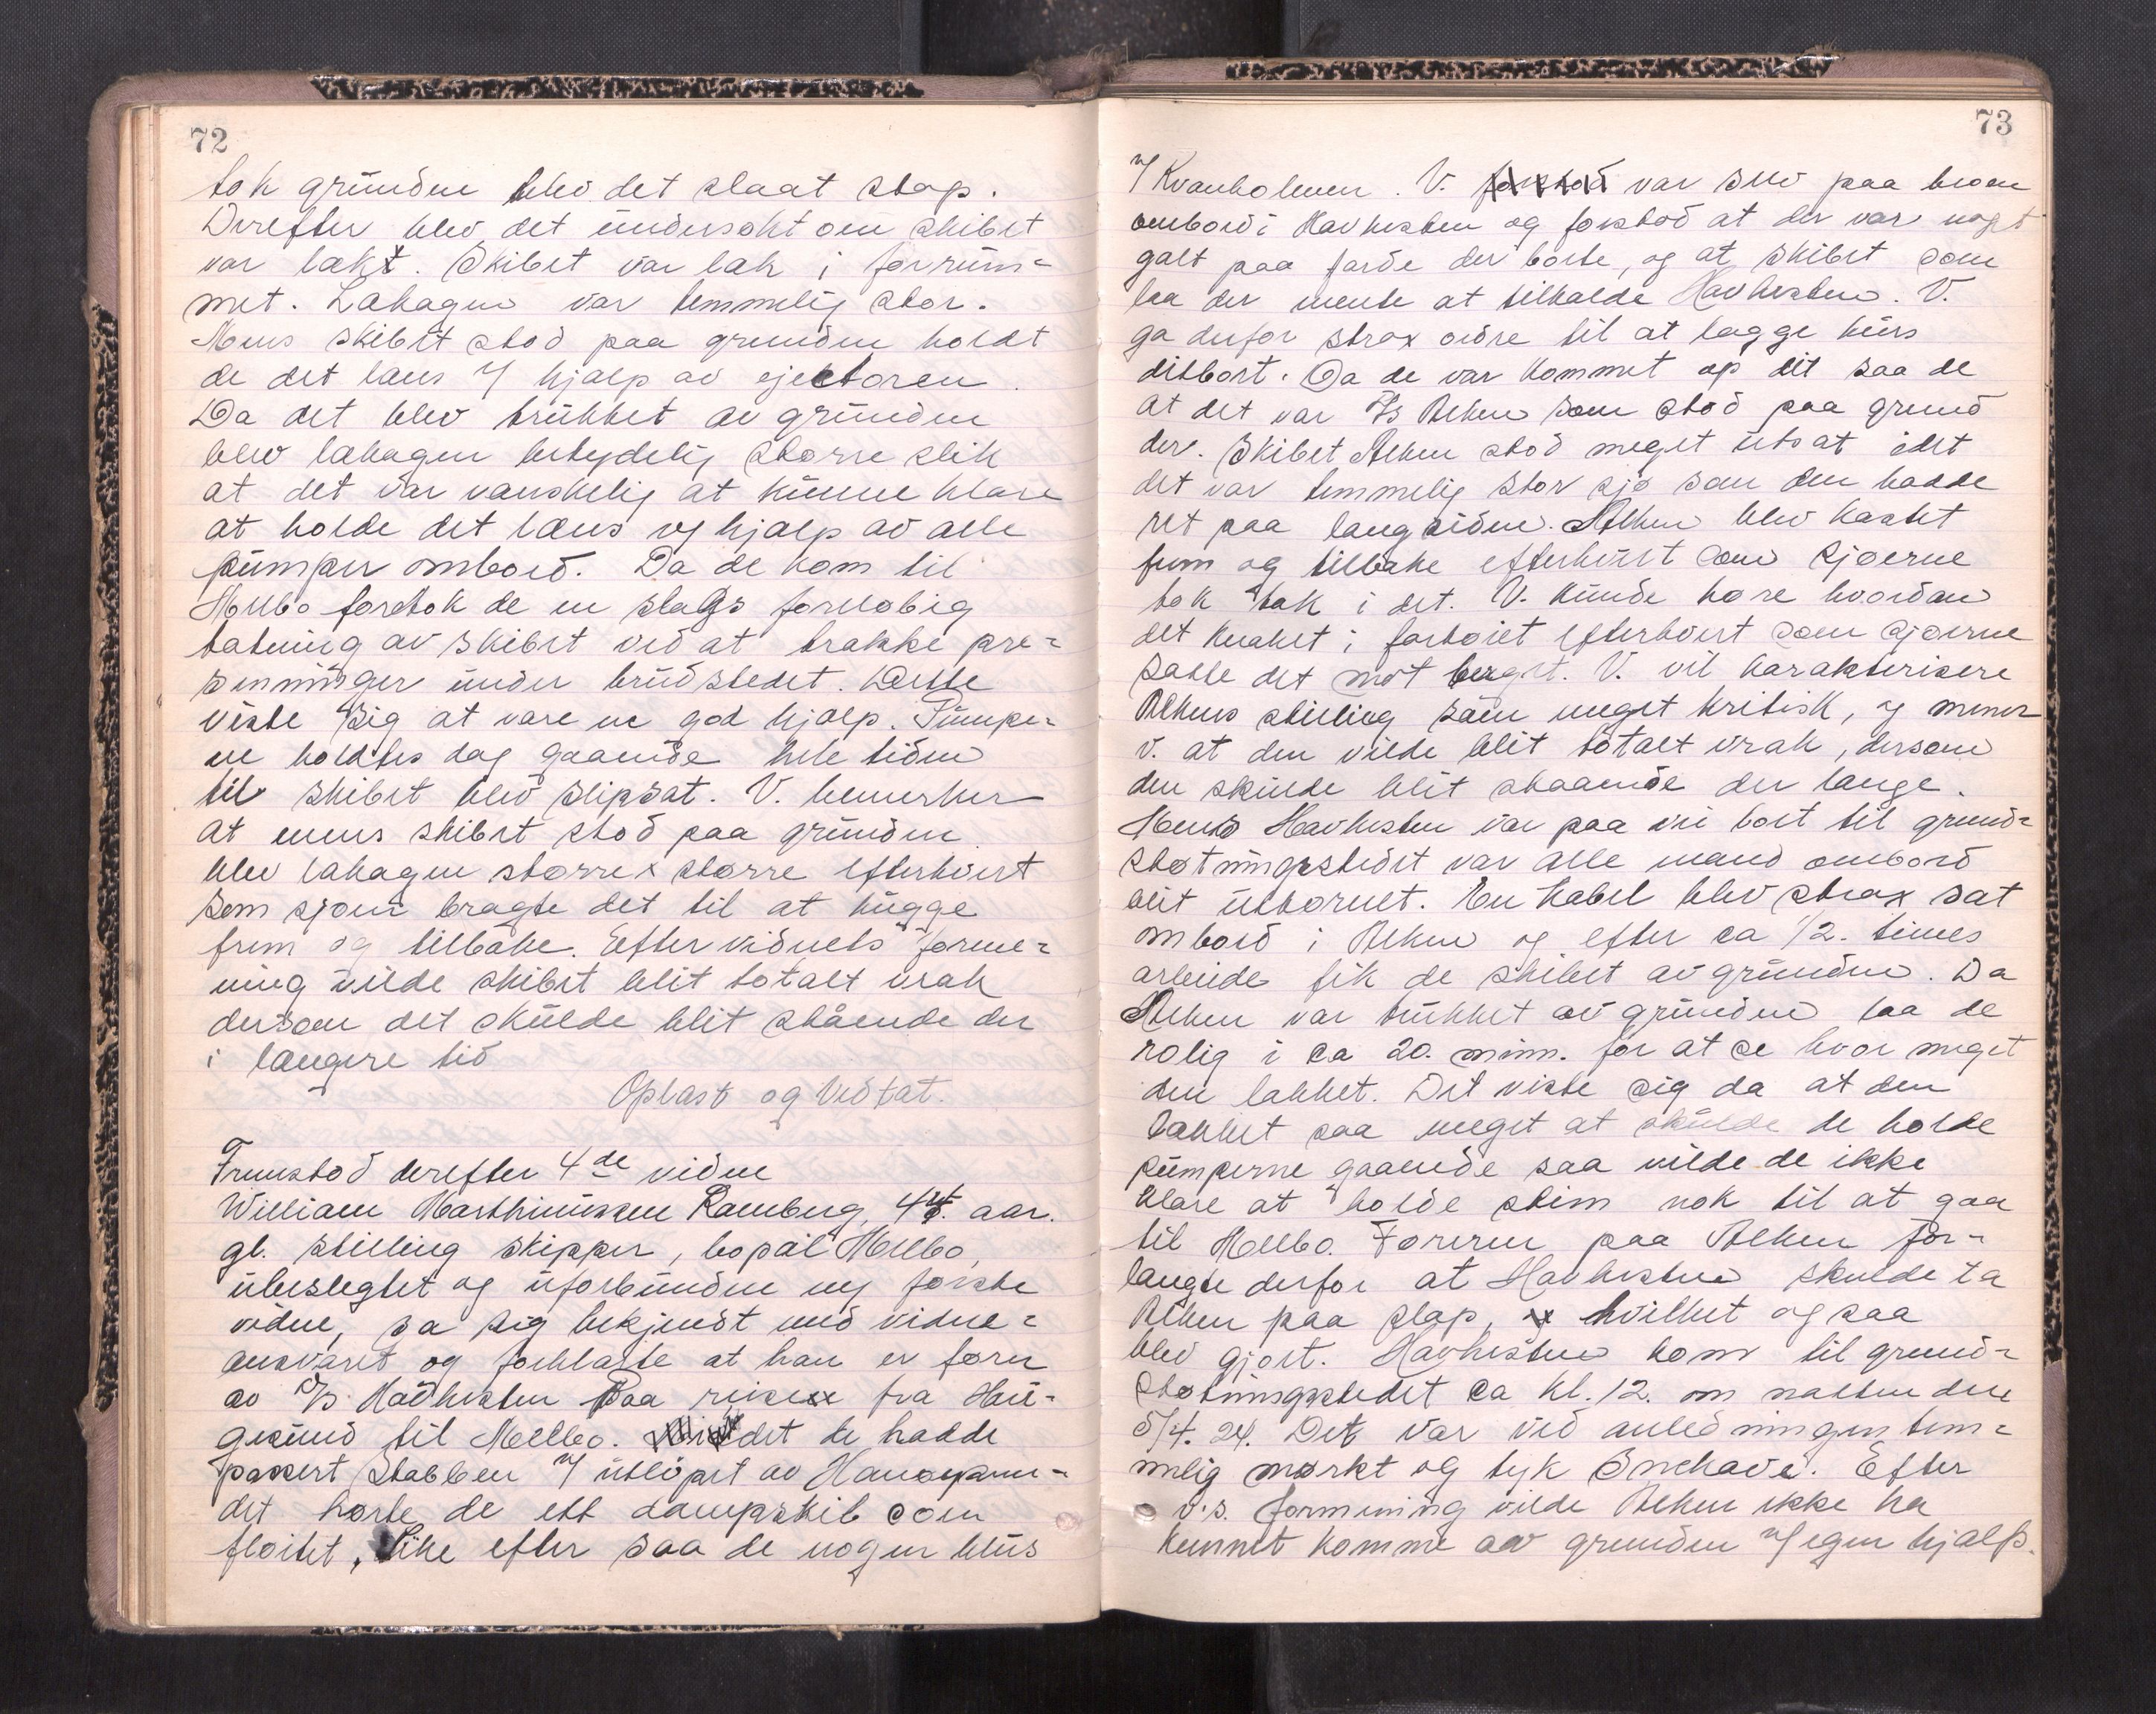 72
tok grunden blev det slaat stop.
Derefter blev det undersøkt om skibet
var lækt. Skibet var læk i forrum-
met. Lækagen var temmelig stor.
Mens skibet stod paa grunden holdt
de det læns v/ hjælp av ejektoren.
Da det blev trukket av grunden
blev lækagen betydelig større slik
at det var vanskelig at kunne klare
at holde det læns v/ hjælp av alle
pumper ombord. Da de kom til
Melbo foretok de en slags foreløbig
tætning av skibet ved at trække pre-
senninger under brudstedet. Dette
viste sig at være en god hjælp. Pumpe-
ne holdtes dog gaaende hele tiden
til skibet blev slipsat. V. bemerker
at mens skibet stod paa grunden
blev lækagen større x større efterhvert
som sjøen bragte det til at hugge
frem og tilbake. Efter vidnets forme-
ning vilde skibet blit totalt vrak
dersom det skulde blit stående der
i længere tid
Oplæst og Vedtat.
Fremstod derefter 4de vidne
William Marthinussen Ramberg, 44. aar.
gl. stilling skipper, bopæl Melbo,
ubeslegtet og uforbunden my første
vidne, sa sig bekjendt med vidne-
ansvaret og forklarte at han er fører
av D/S Havhesten Paa reisen fra Hau-
gesund til Melbo. det de hadde
passert Stabben v/ utløpet av
det hørte de ett dampskib som
fløitet, like efter saa de nogen blus
73
v/ Kvanholmen. V. var selv paa broen
ombord i Havhesten og forstod at der var noget
galt paa færde der borte, og at skibet som
laa der mente at tilkalde Havhesten. V.
ga derfor strax ordre til at lægge kurs
ditbort. Da de var kommet op dit saa de
at det var D/S Alken som stod paa grund
der. Skibet Alken stod meget utsat idet
det var temmelig stor sjø som den hadde
ret paa langsiden. Alken blev kastet
frem og tilbake efterhvert som sjøerne
tok tak i det. V. kunde høre hvordan
det knaket i fartøiet efterhvert som sjøerne
satte det mot berget. V. vil karakterisere
Alkens stilling som meget kritisk, og mener
v. at den vilde blit totalt vrak, dersom
den skulde blit staaende der længe.
Mens Havhesten var paa vei bort til grund-
støtningsstedet var alle mand ombord
blit uttørnet. En kabel blev strax sat
ombord i Alken og efter ca 1/2. times
arbeide fik de skibet av grunden. Da
Alken var trukket av grunden laa de
rolig i ca 20. minn. for at se hvor meget
den lækket. Det viste sig da at den
lækket saa meget at skulde de holde
pumperne gaaende saa vilde de ikke
klare at holde stim nok til at gaa
til Melbo. Føreren paa Alken for-
langte derfor at Havhesten skulde ta
Alken paa slap, hvilket og saa
blev gjort. Havhesten kom til grund-
støtningsstedet ca kl. 12. om natten den
5/4. 24. Det var ved anledningen tem-
melig mørkt og tyk Snekave. Efter
v.s. formening vilde Alken ikke ha
kunnet komme av grunden v/ egen hjælp.